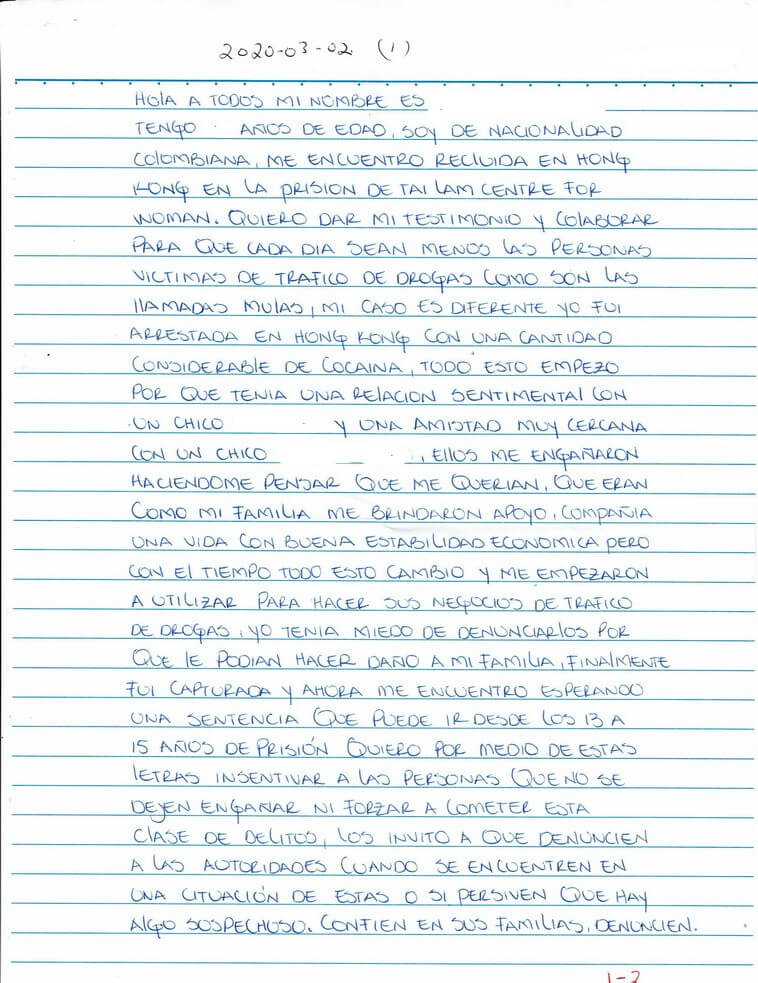 2020-03-02 (1)
HOlA A TODOS MI NOMBRE ES
TENGO AÑOS DE EDAD, SOY DE NACIONALIDAD
COlOMBIANA, ME ENCUENTRO RECLUIDA EN HONG
KONG EN LA PRISION DE TAI LAM CENTRE FOR
WOMAN. QUIERO DAR MI TESTIMONIO Y COlABORAR
PARA QUE CADA DIA SEAN MENOS LAS PERSONAS
VICTIMAS DE TRAFICO DE DROGAS COMO SON LAS
llAMADAS MULAS, MI CASO ES DIFERENTE YO FUI
ARRESTADA EN HONG KONG CON UNA CANTIDAD
CONSIDERABlE DE COCAINA, TODO ESTO EMPEZO
POR QUE TENIA UNA RElACION SENTIMENTAl CON
UN CHICO Y UNA AMISTAD MUY CERCANA
CON UN CHICO , EllOS ME ENGAÑARON
HACIENDOME PENSAR QUE ME QUERIAN, QUE ERAN
COMO MI FAMILIA ME BRINDARON APOYO, COMPAÑIA
UNA VIDA CON BUENA ESTABILIDAD ECONOMICA PERO
CON El TIEMPO TODO ESTO CAMBIO Y ME EMPEZARON
A UTILIZAR PARA HACER SUS NEGOCIOS DE TRAFICO
DE DROGAS, YO TENIA MIEDO DE DENUNCIARlOS POR
QUE lE PODIAN HACER DAÑO A MI FAMILIA, FINALMENTE
FUI CAPTURADA Y AHORA ME ENCUENTRO ESPERANDO
UNA SENTENCIA QUE PUEDE IR DESDE LOS 13 A
15 AÑOS DE PRISIÓN QUIERO POR MEDIO DE ESTAS
lETRAS INSENTIVAR A LAS PERSONAS QUE NO SE
DEJEN ENGAÑAR NI FORZAR A COMETER ESTA
ClASE DE DELITOS, LOS INVITO A QUE DENUNCIEN
A LAS AUTORIDADES CUANDO SE ENCUENTREN EN
UNA CITUACIÓN DE ESTAS O SI PERSIVEN QUE HAY
AlGO SOSPECHOSO. CONFIEN EN SUS FAMILIAS, DENUNCIEN.